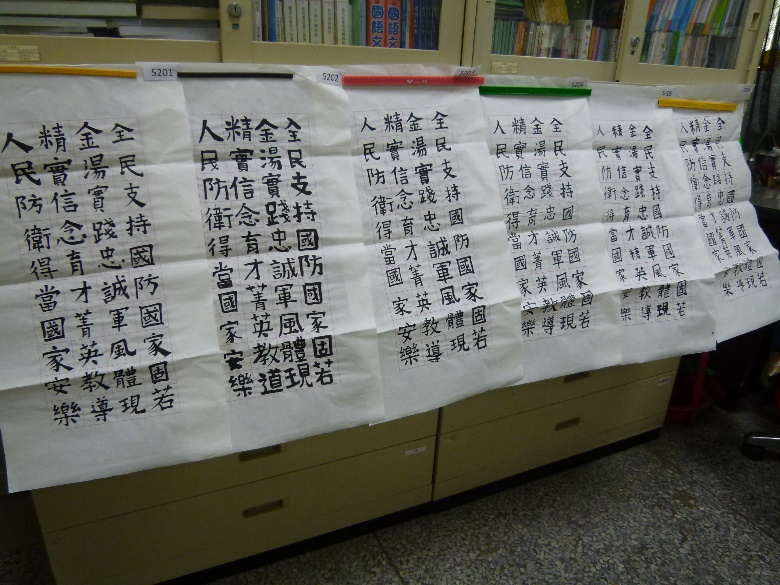 國語文
國語文
5201
全民支持國防國家固若
金湯實踐忠誠軍風體現
精實信念育才菁英教導
人民防衛得當國家安樂
5202
全民支持國防國家固若
金湯實踐忠誠軍風體現
精實信念育才菁英教道
人民防衛得當國家安樂
5203
全民支持國防國家固若
金湯實踐忠誠軍風體現
精實信念育才菁英教導
人民防衛得當國家安樂
5204
全民支持國防國家固若
金湯實踐忠誠軍風體現
精實信念育才菁英教導
人民防衛得當國家安樂
5205
全民支持國防國家固若
金湯實踐忠誠軍風體現
精實信念育才精英教導
人民防衛得當國家安樂
全民支持國防國家固若
金湯實踐忠誠軍風體現
精實信念育才菁英教導
人民防衛得當國家安樂